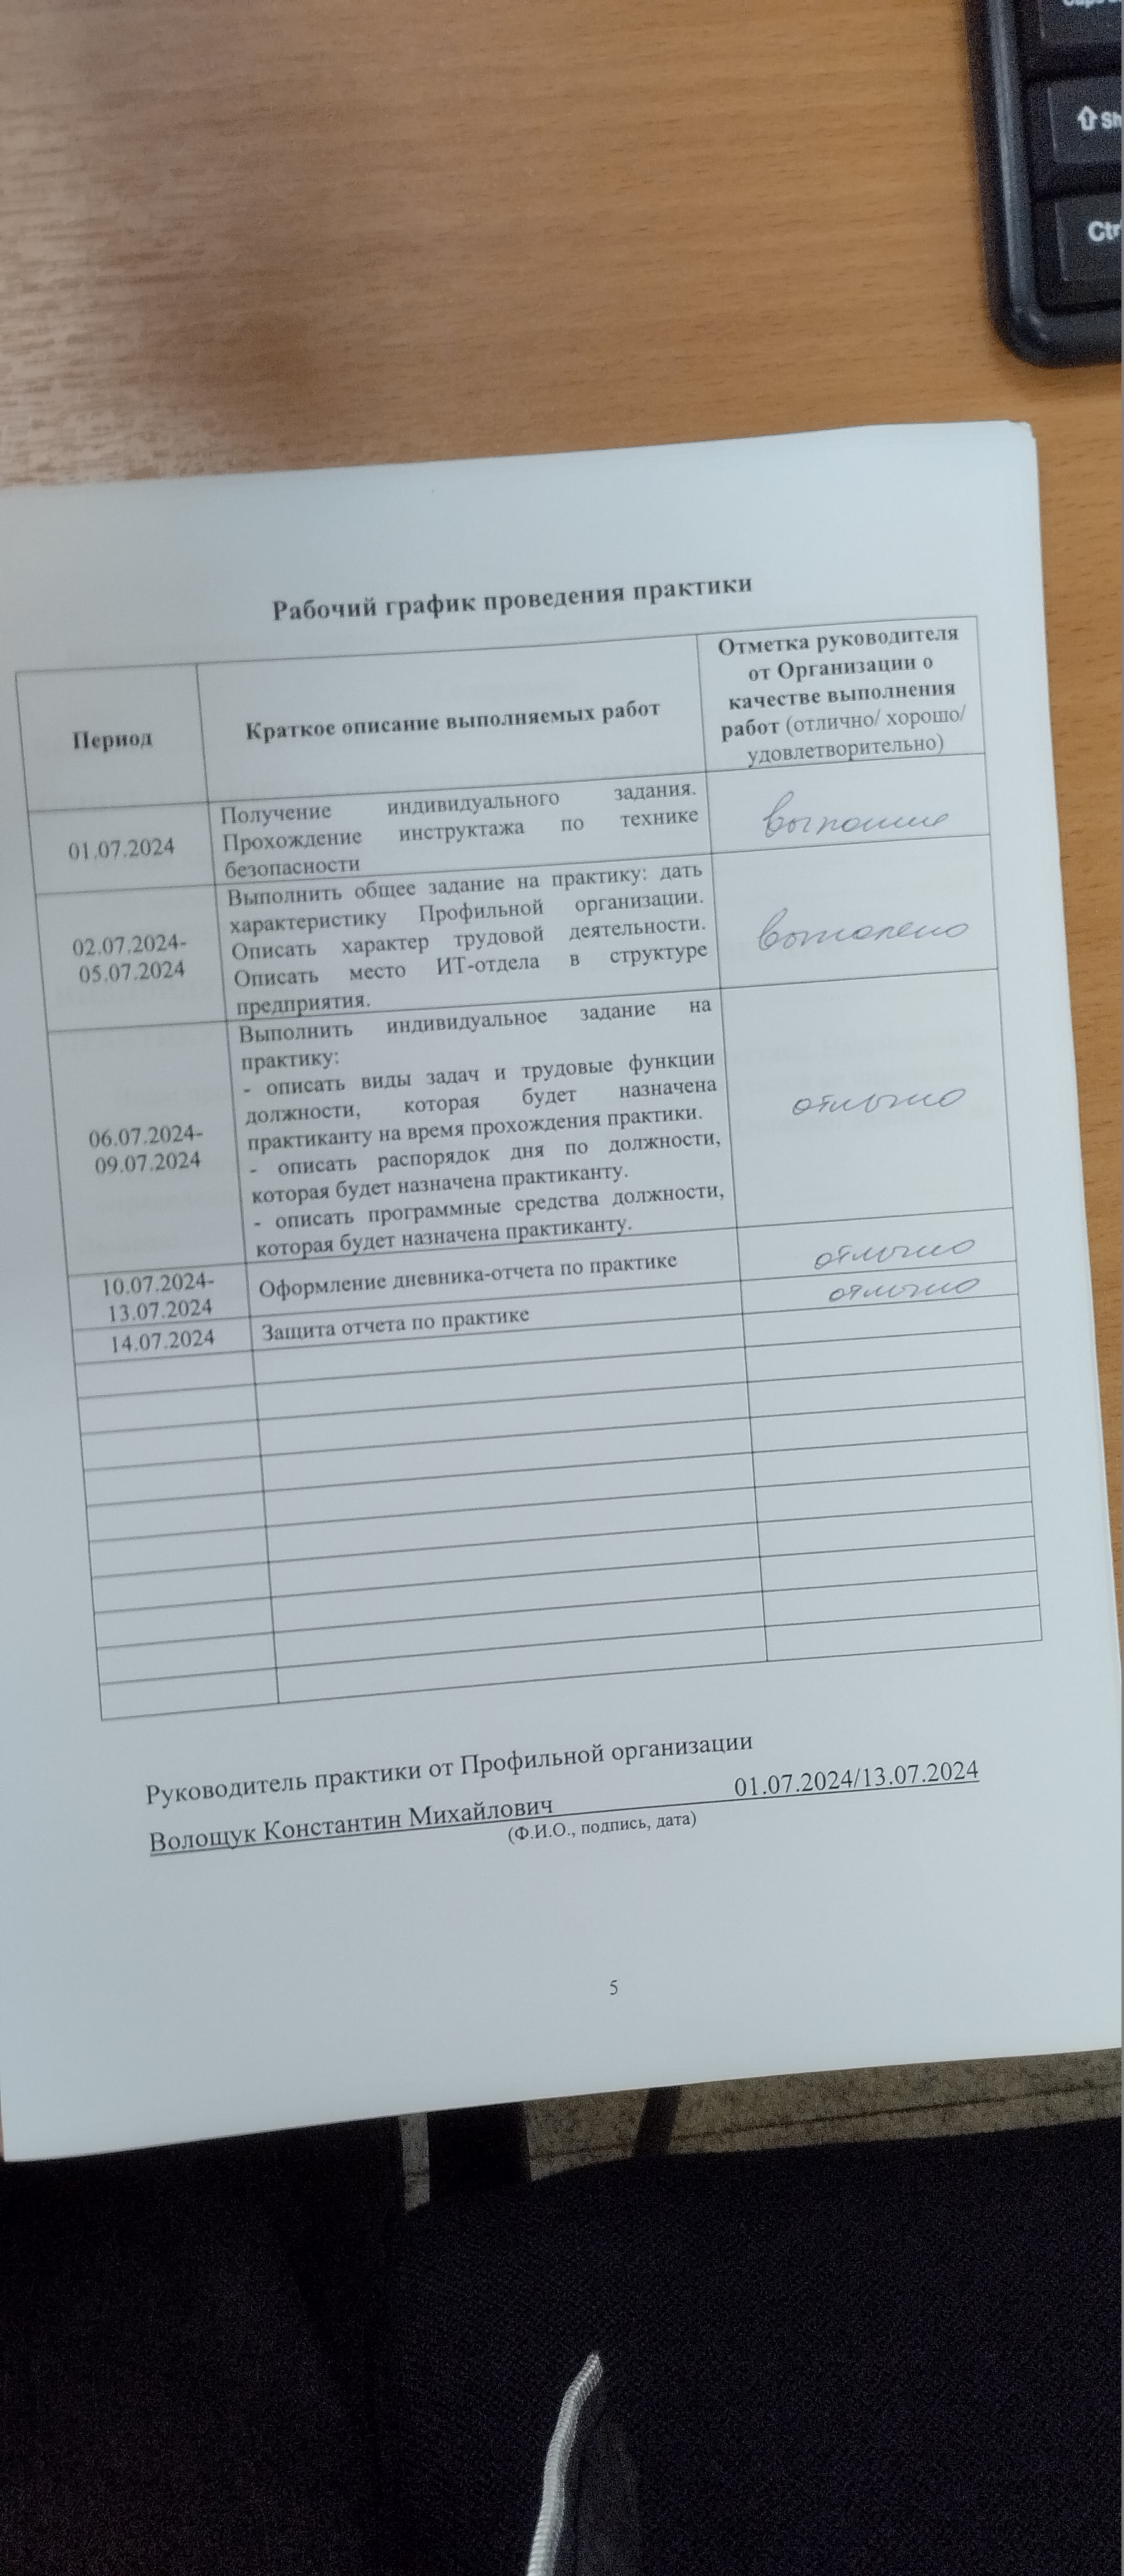 Sh
Ctr
Рабочий график проведения практики
Период
Краткое описание выполняемых работ
Отметка руководителя
от Организации о
качестве выполнения
работ (отлично/ хорошо/
удовлетворительно)
01.07.2024
Получение индивидуального задания.
Прохождение инструктажа по технике
безопасности
02.07.2024-
05.07.2024
Выполнить общее задание на практику: дать
характеристику Профильной организации.
Описать характер трудовой деятельности.
Описать место ИТ-отдела в структуре
предприятия.
06.07.2024-
09.07.2024
Выполнить индивидуальное задание на
практику:
- описать виды задач и трудовые функции
должности, которая будет назначена
практиканту на время прохождения практики.
- описать распорядок дня по должности,
которая будет назначена практиканту.
- описать программные средства должности,
которая будет назначена практиканту.
отлично
10.07.2024-
13.07.2024
Оформление дневника-отчета по практике
отлично
14.07.2024
Защита отчета по практике
отлично
Руководитель практики от Профильной организации
Волощук Константин Михайлович 01.07.2024/13.07.2024
(Ф.И.О., подпись, дата)
5